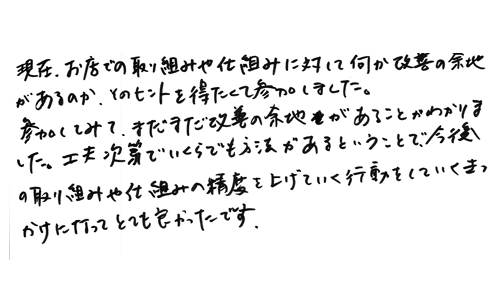 現在、お店での取り組みや仕組みに対して何か改善の余地
があるのか、そのヒントを得たくて参加しました。
参加してみて、まだまだ改善の余地があることがわかりま
した。工夫次第でいくらでも方法があるということで、今後
の取り組みや仕組みの精度を上げていく行動をしていくきっ
かけになってとても良かったです。